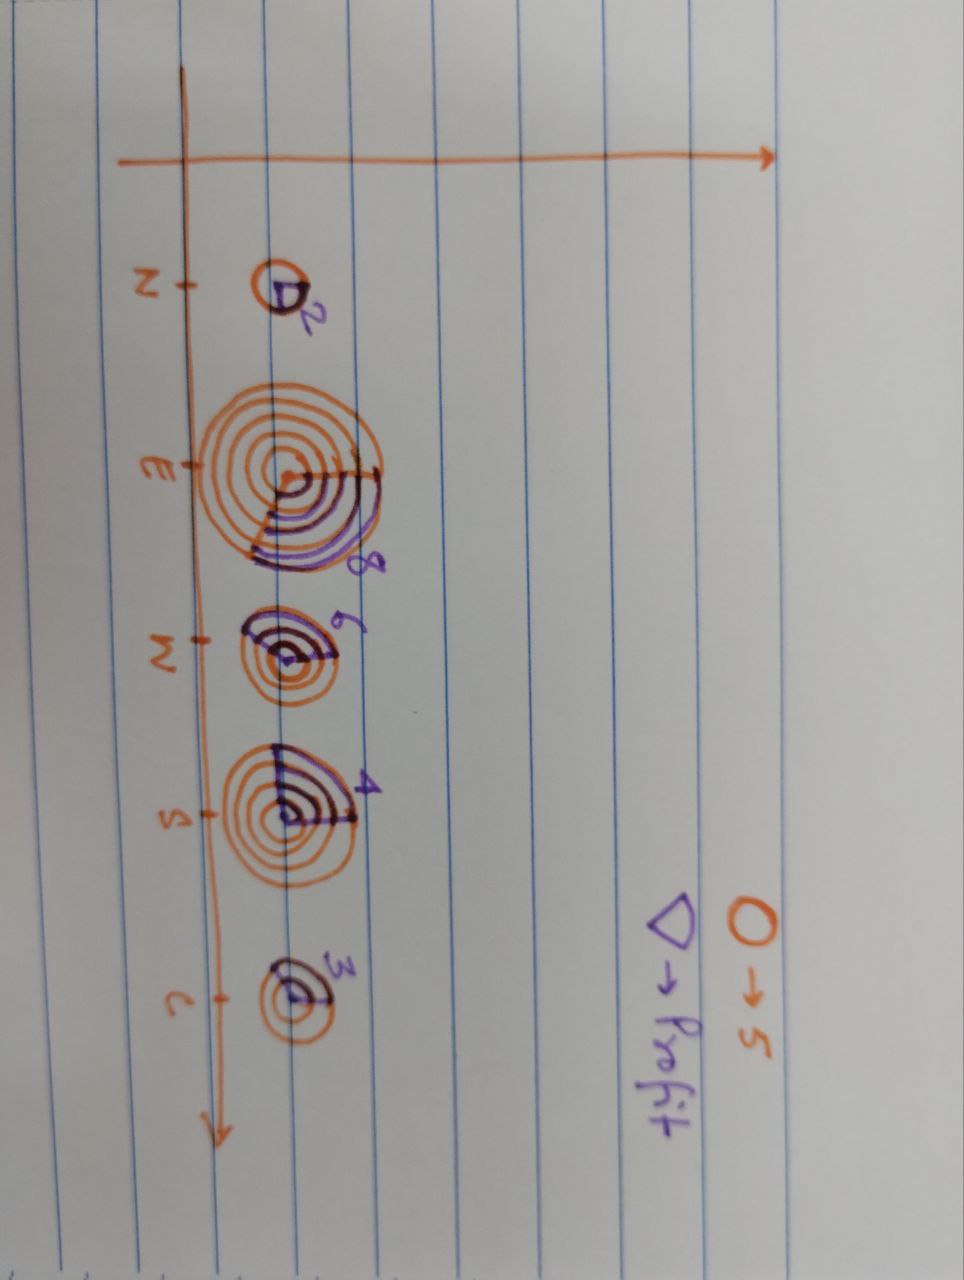 → 5
→ Profit
2
8
6
4
3
N
E
W
S
C